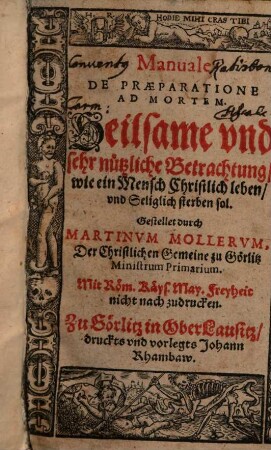 HODIE MIHI CRAS TIBI
Manuale
DE PRÆPARATIONE
AD MORTEM.
Heilsame vnd
sehr nützliche Betrachtung/
wie ein Mensch Christlich leben/
vnd Seliglich sterben sol.
Gestellet durch
MARTINVM MOLLERVM,
Der Christlichen Gemeine zu Görlitz
Ministrum Primarium.
Mit Röm. Käys. May. Freyheit
nicht nach zudrucken.
Zu Görlitz in Ober Lausitz/
druckts vnd vorlegts Johann
Rhambaw.